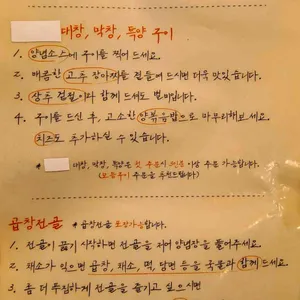 대창, 막창, 특양 구이
1. 양념소스에 구이를 찍어 드세요.
2. 매콤한 고추 장아찌를 곁들여 드시면 더욱 맛있습니다.
3. 상추 겉절이와 함께 드셔도 별미입니다.
4. 구이를 드신 후, 고소한 양볶음밥으로 마무리해보세요.
치즈도 추가하실 수 있습니다.
* 대창, 막창, 특양은 첫 주문시 2인분 이상 주문 가능합니다.
(모듬구이 주문을 추천드립니다)
곱창전골 * 곱창전골 포장가능합니다.
1. 전골이 끓기 시작하면 전골을 저어 양념장을 풀어주세요.
2. 채소가 익으면 곱창, 채소, 떡, 당면 등을 국물과 함께 드세요.
3. 좀 더 푸짐하게 전골을 즐기고 싶으시면